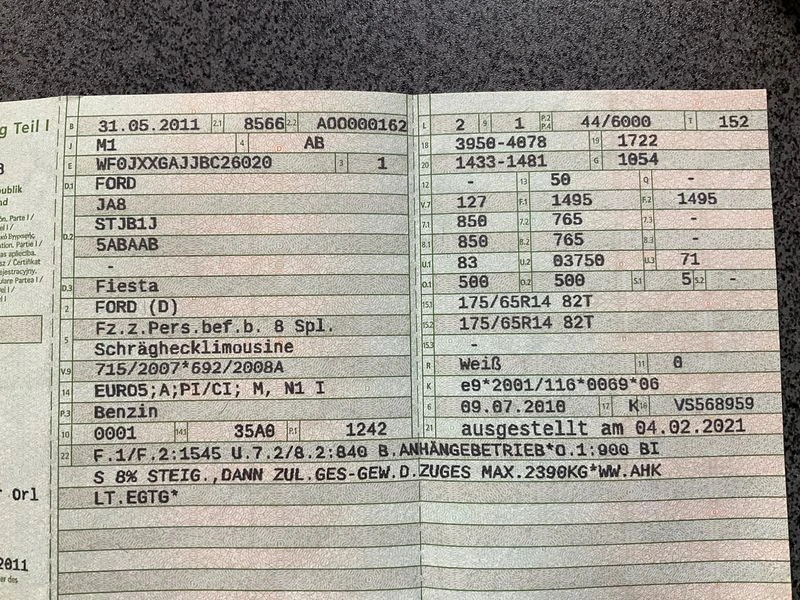 g Teil I
B 31.05.2011 2.1 8566 2.2 AOO000162
J M1 4 AB
E WF0JXXGAJJBC26020 3 1
D.1 FORD
JA8
D.2 STJB1J
5ABAAB
-
D.3 Fiesta
2 FORD (D)
5 Fz.z.Pers.bef.b. 8 Spl.
Schräghecklimousine
V.9 715/2007*692/2008A
14 EURO5;A;PI/CI; M, N1 I
P.3 Benzin
10 0001 14.1 35A0 P.1 1242
L 2 9 1 P.2 P.4 44/6000 T 152
18 3950-4078 19 1722
20 1433-1481 G 1054
12 - 13 50 Q -
V.7 127 F.1 1495 F.2 1495
7.1 850 7.2 765 7.3 -
8.1 850 8.2 765 8.3 -
U.1 83 U.2 03750 U.3 71
O.1 500 O.2 500 S.1 5 S.2 -
15.1 175/65R14 82T
15.2 175/65R14 82T
15.3 -
R Weiß 11 0
K e9*2001/116*0069*06
6 09.07.2010 17 K 16 VS568959
21 ausgestellt am 04.02.2021
22 F.1/F.2:1545 U.7.2/8.2:840 B.ANHÄNGEBETRIEB*O.1:900 BI
S 8% STEIG.,DANN ZUL.GES-GEW.D.ZUGES MAX.2390KG*WW.AHK
LT.EGTG*
Orl
2011